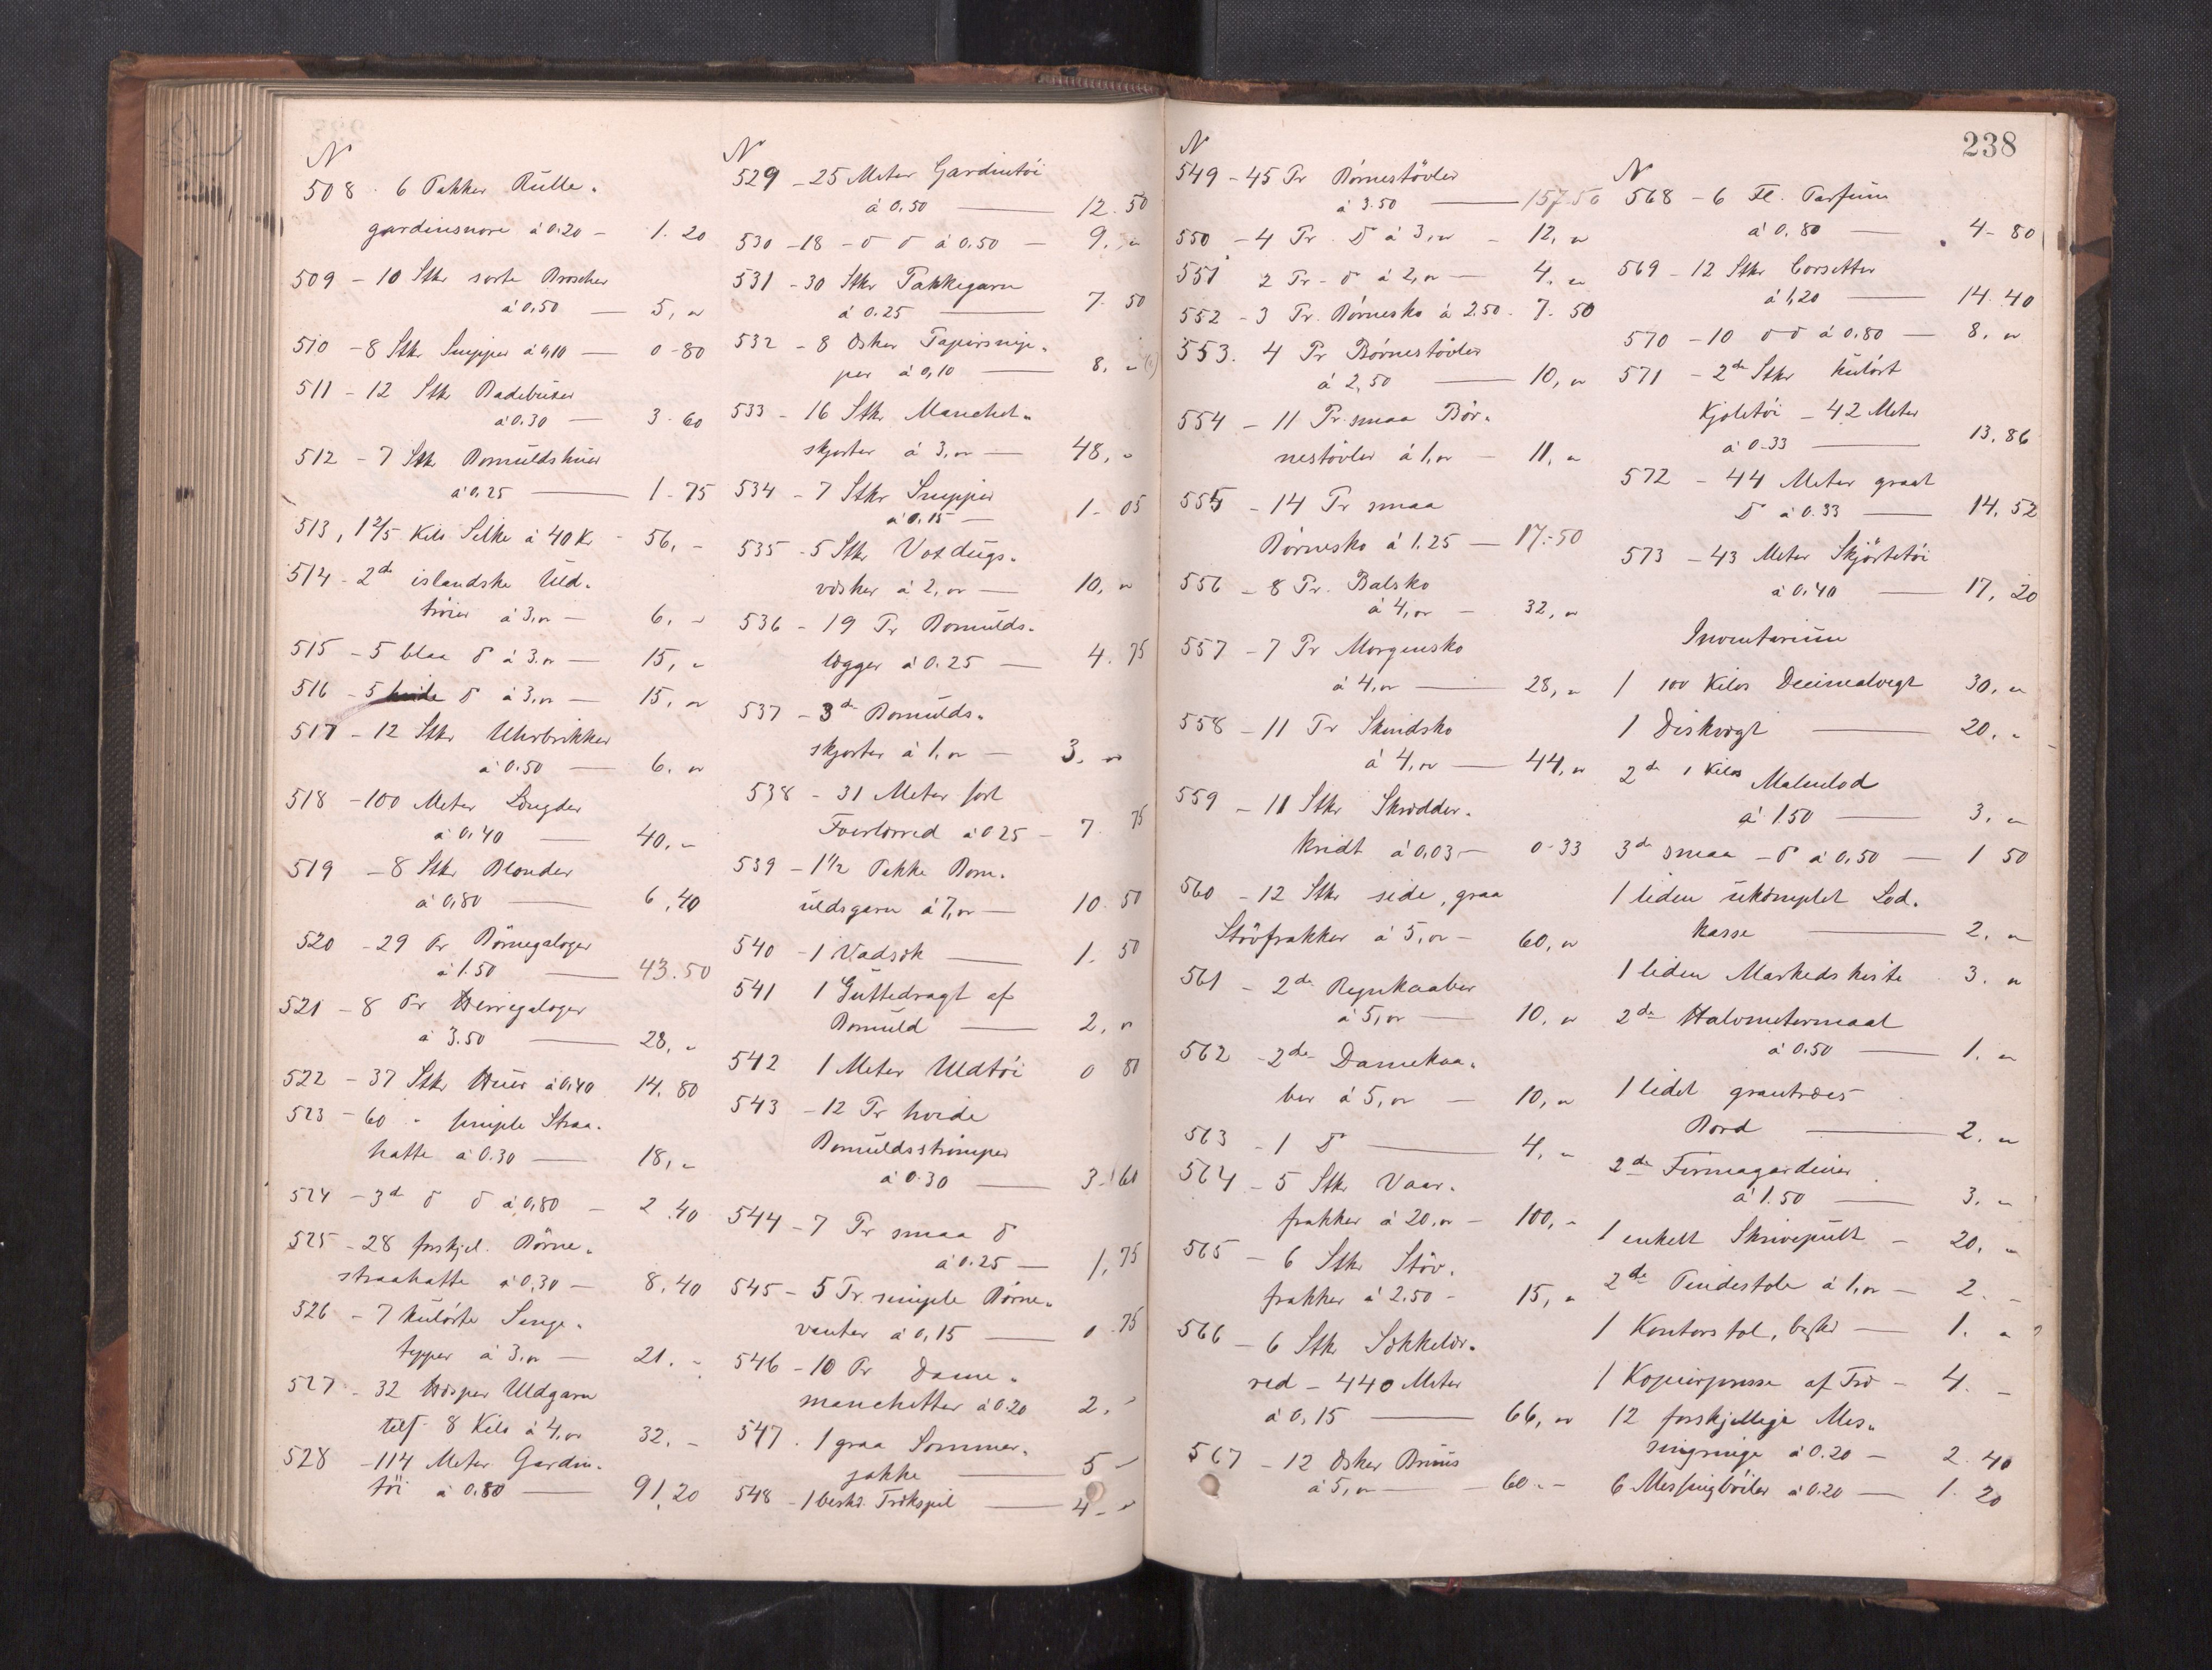 N
508 . 6 Pakker Rulle-
gardinsnore á 0.20 - 1.20
509 - 10 Stkr sorte Broscher
á 0,50 — 5, "
510 - 8 Stkr Snipper á 0,10 — 0-80
511 - 12 Stk Badebuxer
á 0.30 — 3.60
512 - 7 Stk Bomuldshuer
á 0.25 — 1-75
513, 1 2/5 Kilo Silke á 40 Kr - 56, -
514 - 2de islandske Uld-
trøier á 3," — 6, -
515 - 5 blaa d á 3." — 15, "
516 - 5 hvide d á 3," — 15, "
517 - 12 Stkr Uhrbrikker
á 0.50 — 6. "
518 - 100 Meter Længder
á 0,40 — 40, "
519 - 8 Stkr Blonder
á 0,80 — 6,40
520 - 29 Pr Börnegaloger
á 1.50 — 43.50
521 - 8 Pr Herregaloger
á 3.50 — 28, "
522 - 37 Stkr Huer á 0,40 14,80
523 - 60 " simple Straa-
hatte á 0.30 — 18, "
524 - 3de d d á 0,80 - 2.40
525 - 28 forskjel. Börne-
straahatte á 0,30 — 8,40
526 - 7 kulörte Senge-
tepper á 3," — 21. -
527 - 32 Hasper Uldgarn
tils. 8 Kilo á 4," 32. -
528 - 114 Meter Gardin-
töi á 0.80 — 91,20
N
529 - 25 Meter Gardintöi
á 0,50 — 12.50
530 - 18 - d d á 0.50 — 9. "
531 - 30 Stkr Pakkegarn
á 0.25 — 7.50
532 - 8 Æsker Papirsnip-
per á 0,10 — 8, "
533 - 16 Stkr Manchet-
skjorter á 3," — 48, "
534 - 7 Stkr Snipper
á 0,15 — 1-05
535 - 5 Stkr Voxdugs-
væsker á 2," — 10, "
536 - 19 Pr Bomulds-
lægger á 0.25 — 4.75
537 - 3de Bomulds-
skjorter á 1," — 3, "
538 - 31 Meter sort
Foerlærred á 0 25 - 7.75
539 - 1 1/2 Pakke Bom-
uldsgarn á 7," — 10.50
540 - 1 Vadsæk — 1.50
541 1 Guttedragt af
Bomuld — 2, "
542 1 Meter Uldtöi 0 80
543 - 12 Pr hvide
Bomuldsströmper
á 0.30 — 3.60
544 - 7 Pr smaa d
á 0.25 — 1,75
545 - 5 Pr. simple Börne-
vanter á 0,15 — 0.75
546 - 10 Pr Dame-
manchetter á 0.20 2, "
547 . 1 graa Sommer-
jakke — 5 -
548 - 1 besk. Trækspil — 4 - "
238
N
549 - 45 Pr Börnestövler
á 3.50 — 157.50
550 - 4 Pr. D á 3," - 12, "
551 2 Pr - d á 2," — 4, "
552 - 3 Pr. Börnesko á 2.50. 7.50
553. 4 Pr Börnestövler
á 2,50 — 10, "
554 - 11 Pr. smaa Bör-
nestövler á 1," - 11, "
555 - 14 Pr smaa
Börnesko á 1.25 — 17.50
556 - 8 Pr. Balsko
á 4," - 32, "
557 - 7 Pr Morgensko
á 4," — 28, "
558 - 11 Pr Skindsko
á 4," — 44, "
559 - 11 Stkr Skrædder-
kridt á 0,03 - 0-33
560 - 12 Stkr side, graa
Stövfrakker á 5," - 60, "
561 - 2de Regnkaaber
á 5," — 10, "
562 - 2de Damekaa-
ber á 5," — 10, "
563 - 1 D — 4, "
564 - 5 Stkr Vaar-
frakker á 20," - 100, -
565 - 6 Stkr Stöv-
frakker á 2.50 - 15, "
566 - 6 Stkr Sækkelær-
red - 440 Meter
á 0,15 — 66, "
567 - 12 Æsker Bruus
á 5," — 60. -
N
568 - 6 Fl. Parfum
á 0,80 — 4-80
569 - 12 Stkr Corsetter
á 1,20 — 14.40
570 - 10 d d á 0.80 — 8, "
571 - 2de Stkr kulört
Kjoletöi - 42 Meter
á 0.33 — 13,86
572 - 44 Meter graat
D á 0.33 — 14,52
573 - 43 Meter Skjörtetöi
á 0,40 — 17,20
Inventarium
1 100 Kilos Decimalvegt 30, "
1 Diskvægt — 20, "
2de 1 Kilos Malmlod
á 1.50 — 3, "
3de smaa - d á 0,50 — 1 50
1 liden ukomplet Lod-
kasse — 2, "
1 liden Markedskiste 3. "
2de Halvmetermaal
á 0.50 — 1. "
1 lidet grantræes
Bord — 2. "
2de Firmagardiner
á 1.50 — 3. "
1 enkelt Skrivepult - 20. "
2de Pindestole á 1," — 2. -
1 Kontorstol, besk. — 1. "
1 Kopierpresse af Træ - 4. -
12 forskjellige Mes-
singringe á 0.20 - 2.40
6 Messingböiler á 0.20 — 1.20